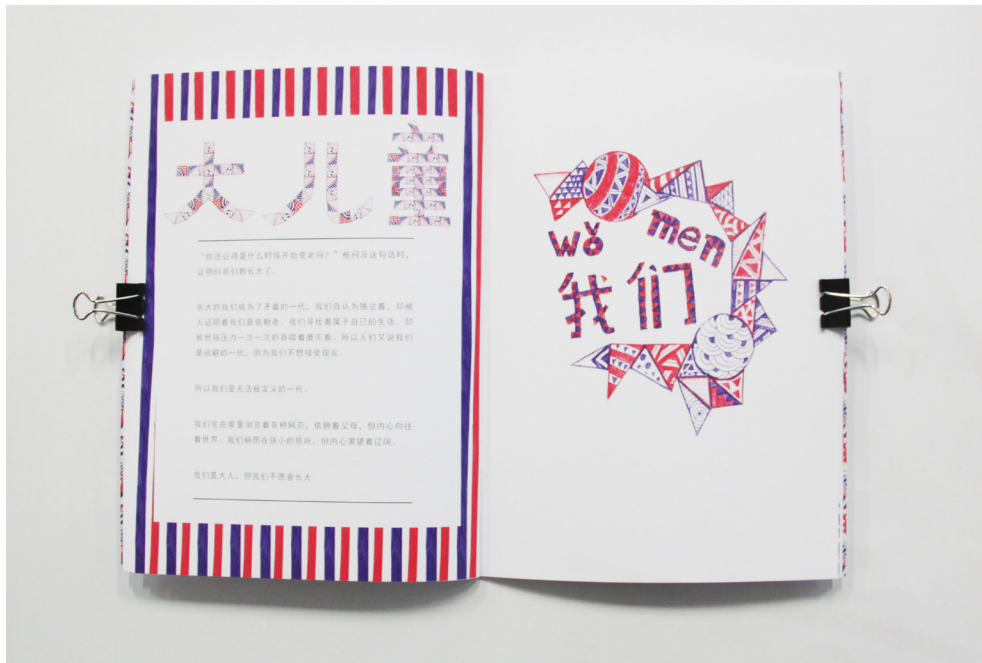 大儿童
“你还记得是什么时候开始变老吗?”被问及这句话时,
证明80我们都长大了。
长大的我们成为了矛盾的一代, 我们自认为独立着, 却被
人证明着我们是依赖者。我们寻找着属于自己的生活, 却
被世俗压力一次一次的吞噬着磨灭着。所以人们又说我们
是逃避的一代, 因为我们不想接受现实。
所以我们是无法被定义的一代。
我们宅在家里浏览着各种网页, 依赖着父母, 但内心向往
着世界。我们蜗居在狭小的居所, 但内心渴望着辽阔。
我们是大人, 但我们不愿意长大
wǒ men
我们